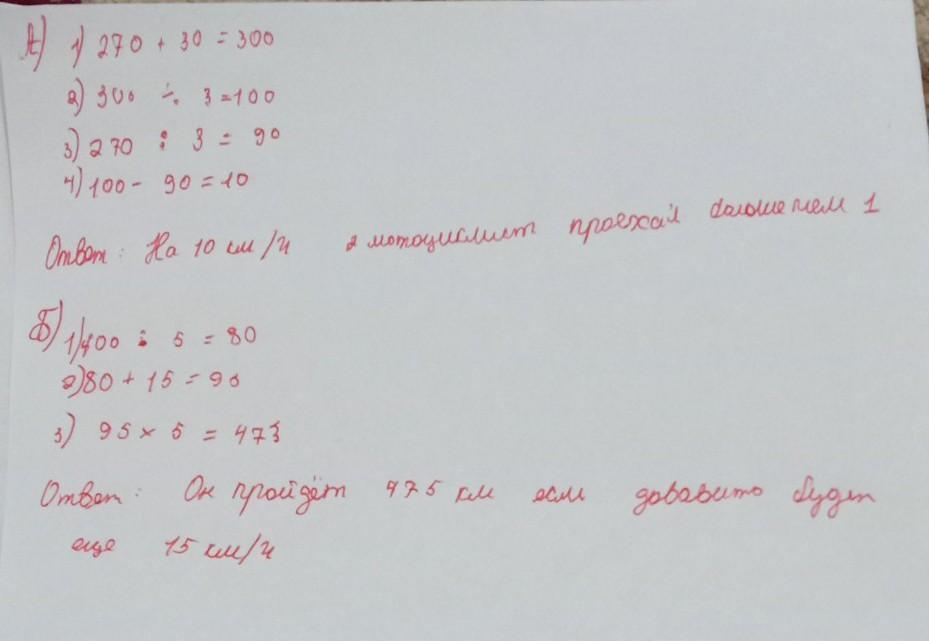 А) 1) 270 + 30 = 300
2) 300 ÷ 3 = 100
3) 270 : 3 = 90
4) 100 - 90 = 10
Ответ: На 10 км/ч 2 мотоциклист проехал больше чем 1
Б) 1) 400 : 5 = 80
2) 80 + 15 = 95
3) 95 × 5 = 475
Ответ: Он пройдёт 475 км если довавить будет
еще 15 км/ч